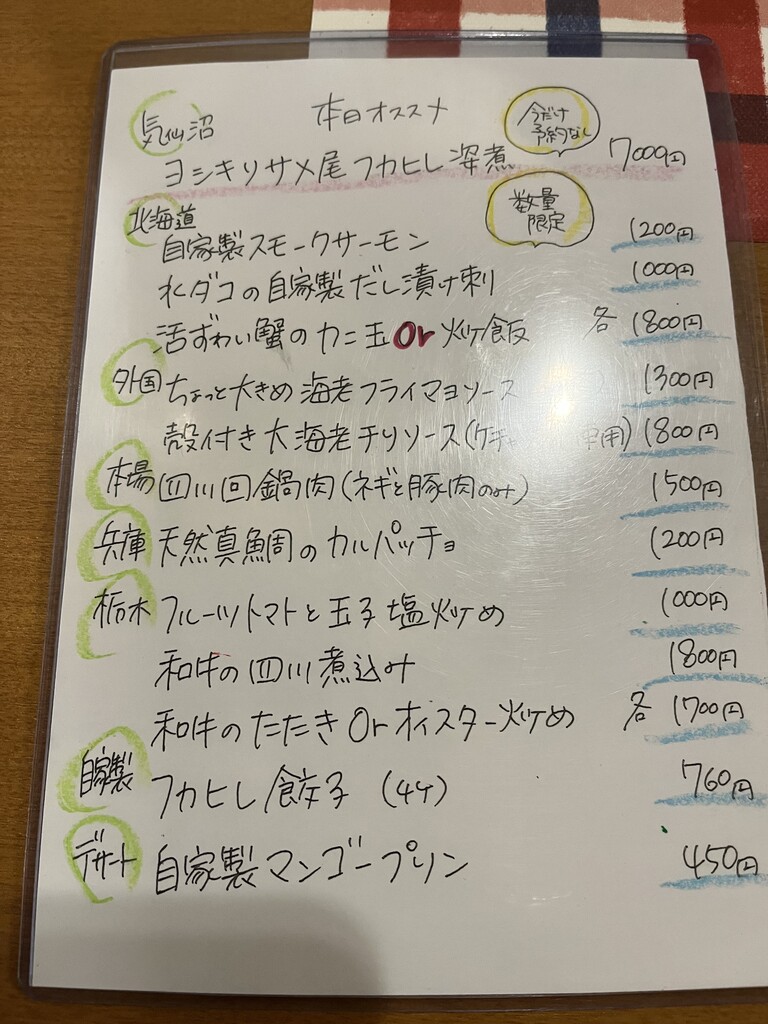 本日オススメ
今だけ
予約なし
気仙沼
ヨシキリサメ尾フカヒレ姿煮 7000円
数量
限定
北海道
自家製スモークサーモン 1200円
水ダコの自家製だし漬け刺 1000円
活ずわい蟹のカニ玉Or炒飯 各1800円
外国 ちょっと大きめ海老フライマヨソース 1300円
殻付き大海老チリソース(ケチャ 用) 1800円
本場 四川回鍋肉(ネギと豚肉のみ) 1500円
兵庫 天然真鯛のカルパッチョ 1200円
栃木 フルーツトマトと玉子塩炒め 1000円
和牛の四川煮込み 1800円
和牛のたたきOrオイスター炒め 各1700円
自家製 フカヒレ餃子(4ケ) 760円
デザート 自家製マンゴープリン 450円